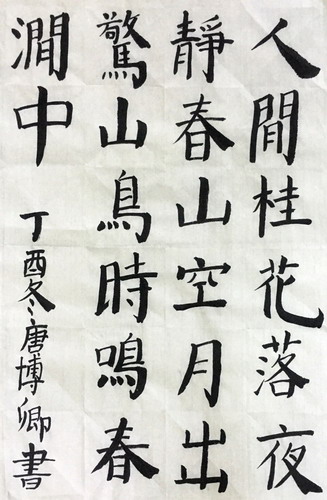 人閒桂花落夜
靜春山空月出
驚山鳥時鳴春
澗中
丁酉冬唐博卿書